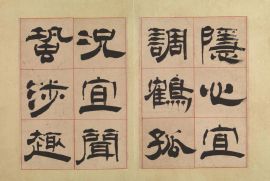 隱心宜
調鶴孤
況宜聞
蛩涉趣